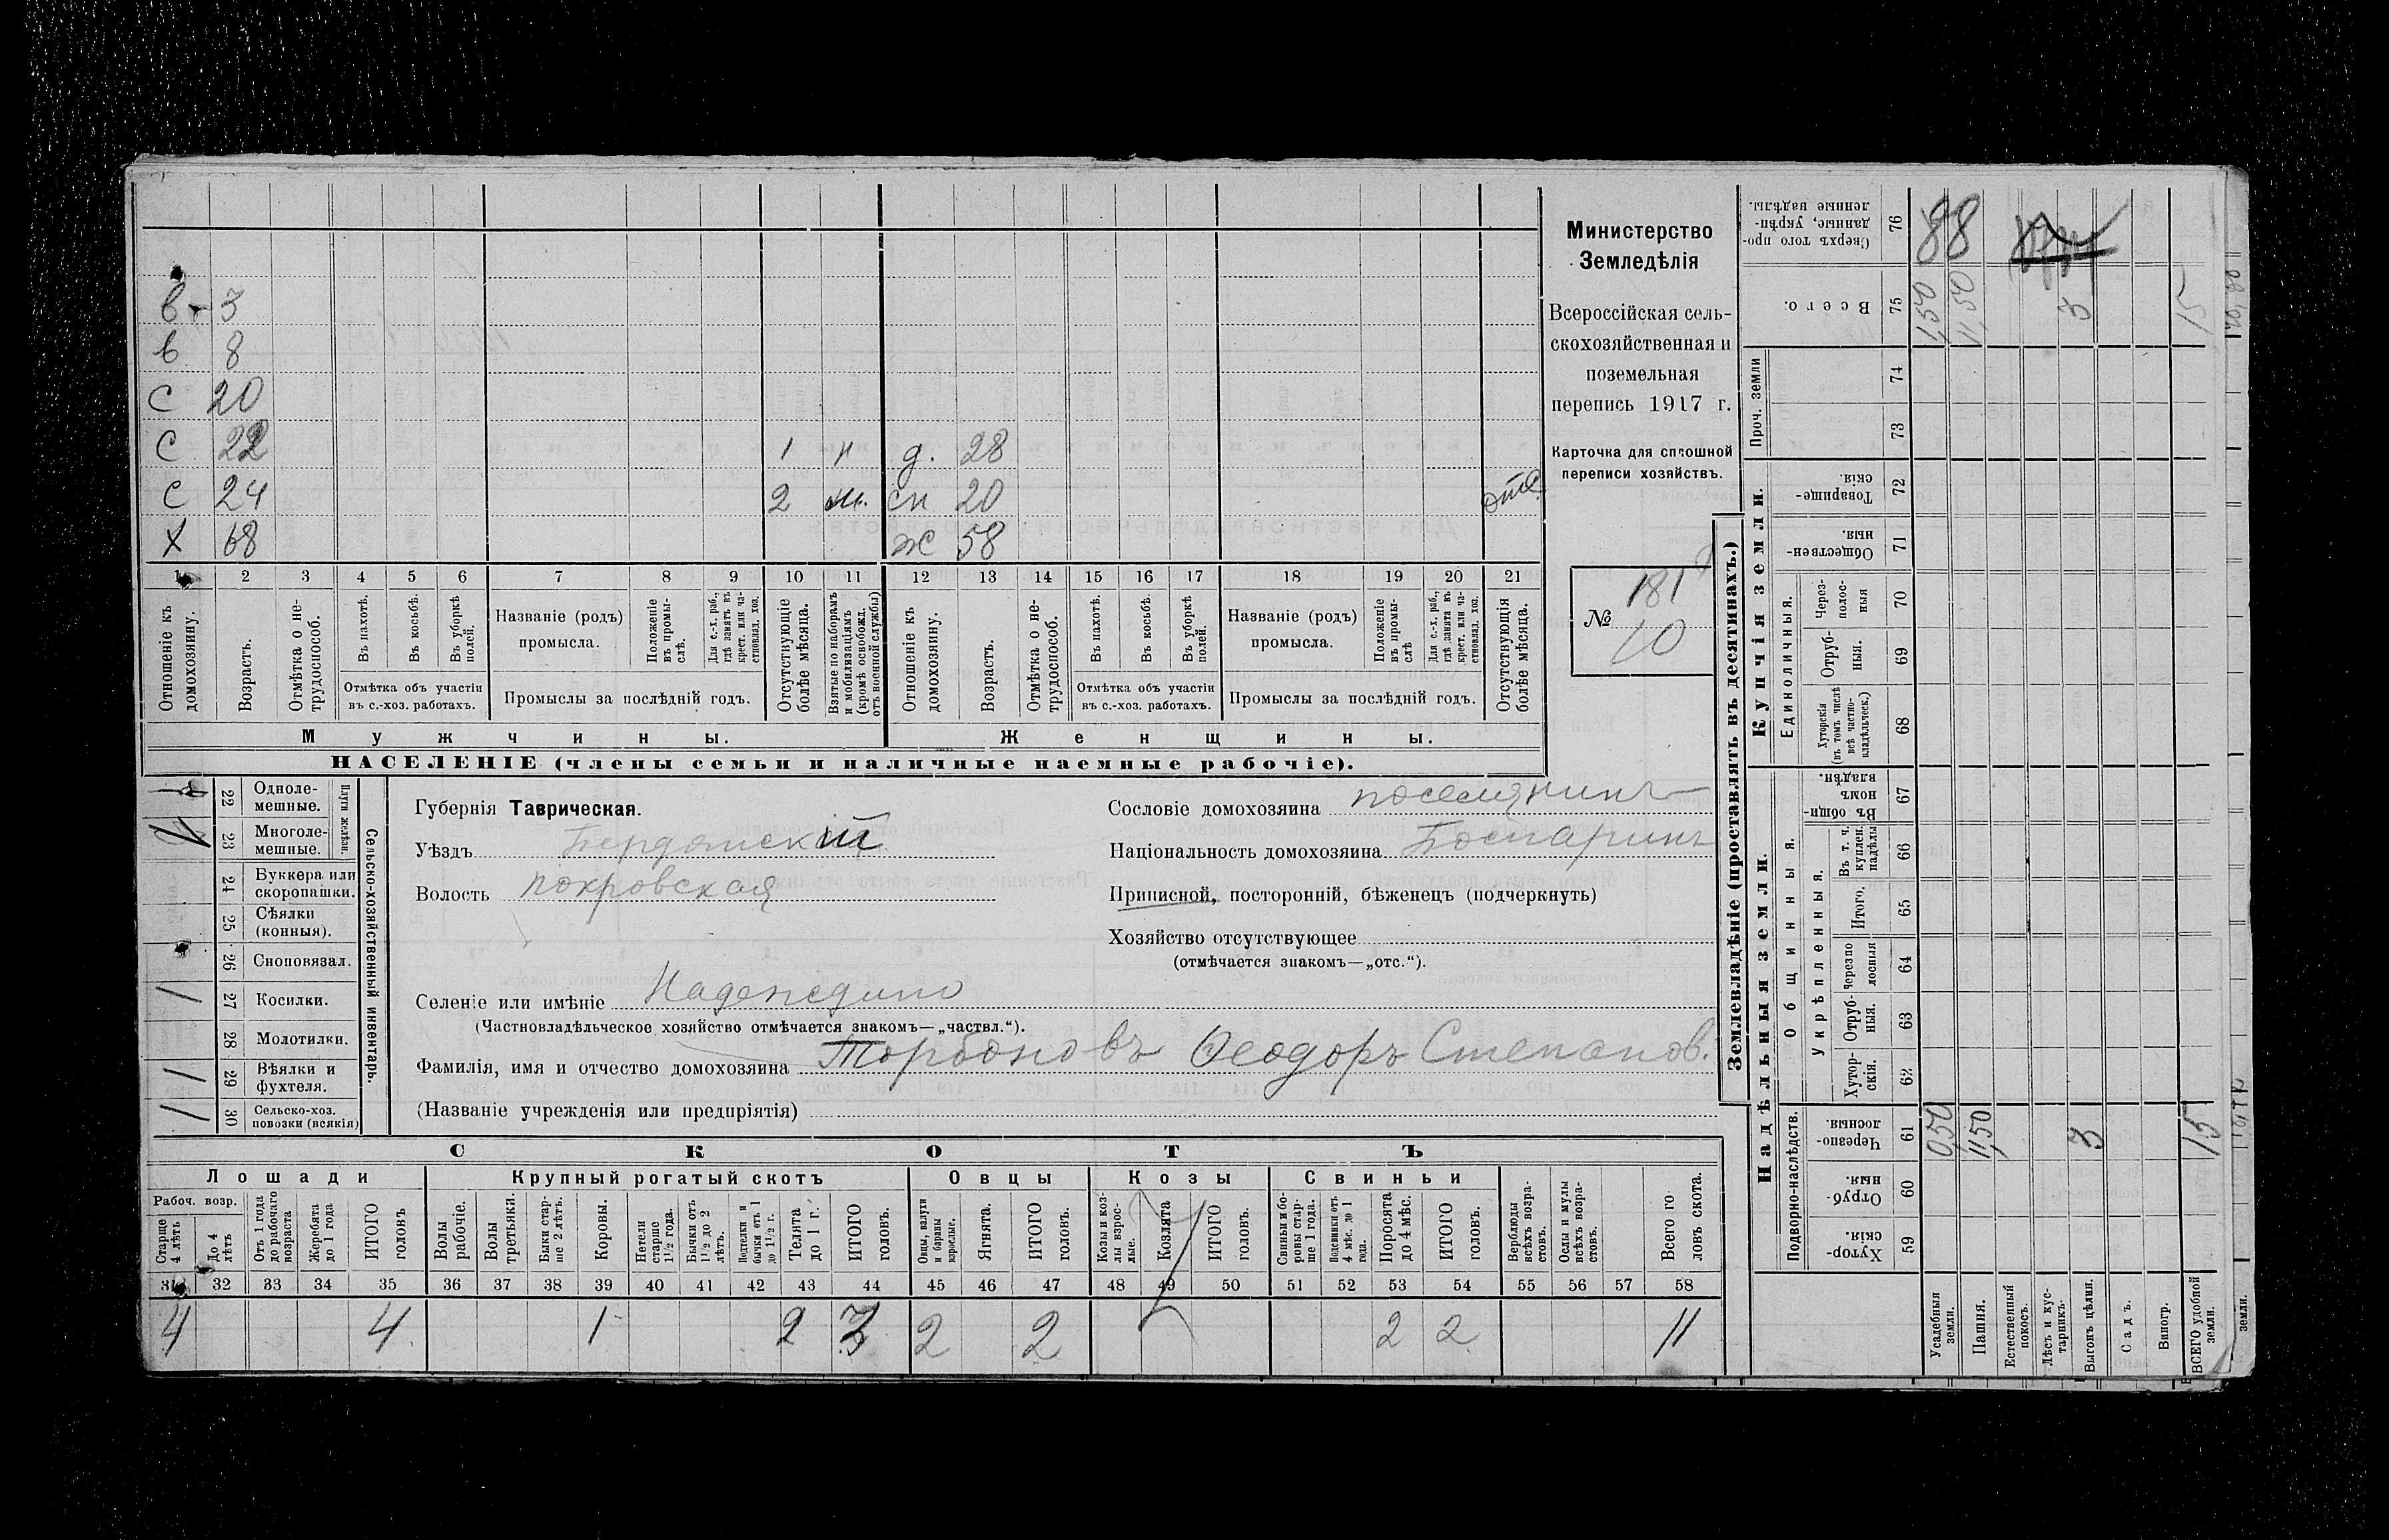 в 3
в 8
с 20
с 22 1 н д. 28
с 24 2 м. сн 20 отс.
х 68 ж 58
1 2 3 4 5 6 7 8 9 10 11 12 13 14 15 16 17 18 19 20 21
Отношеніе къ домохозяину.
Возрастъ.
Отмѣтка о не-
трудоспособ.
Въ пахотѣ.
Въ косьбѣ.
Въ уборкѣ
полей.
Отмѣтка объ участіи
въ с.-хоз. работахъ.
Названіе (родъ)
промысла.
Положеніе
въ промы-
слѣ.
Для с.-х. раб.,
гдѣ занятъ въ
крест. или ча-
стновлад. хоз.
Промыслы за послѣдній годъ.
Отсутствующіе
болѣе мѣсяца.
Взятые по наборамъ
и мобилизаціямъ
(кромѣ освобожд.
отъ военной службы)
Отношеніе къ
домохозяину.
Возрастъ.
Отмѣтка о не-
трудоспособ.
Въ пахотѣ.
Въ косьбѣ.
Въ уборкѣ
полей.
Отмѣтка объ участіи
въ с.-хоз. работахъ.
Названіе (родъ)
промысла.
Положеніе
въ промы-
слѣ
Для с.-х. раб.,
гдѣ занята въ
крест. или ча-
стновлад. хоз.
Промыслы за послѣдній годъ.
Отсутствующія
болѣе мѣсяца.
Мужчины.
Женщины.
НАСЕЛЕНІЕ (члены семьи и наличные наемные рабочіе).
Министерство
Земледѣлія
Всероссійская сель-
скохозяйственная и
поземельная
перепись 1917 г.
Карточка для сплошной
переписи хозяйствъ.
№ 181
10
22 Одноле-
мешные.
23 Многоле-
мешные.
Плуги желѣзн.
24 Буккера или
скоропашки.
25 Сѣялки
(конныя).
26 Сноповязал.
27 Косилки.
28 Молотилки.
29 Вѣялки и
фухтеля.
30 Сельско-хоз.
повозки (всякія)
Сельско-хозяйственный инвентарь.
Губернія Таврическая.
Уѣздъ Бердянскій
Волость покровская
Сословіе домохозяина поселянинъ
Національность домохозяина
Приписной, посторонній, бѣженецъ (подчеркнуть)
Хозяйство отсутствующее
(отмѣчается знакомъ—„отс.“).
Селеніе или имѣніе Надеждино
(Частновладѣльческое хозяйство отмѣчается знакомъ—„частвл.“).
Фамилія, имя и отчество домохозяина Торбоновъ Ѳеодоръ Степанов.
(Названіе учрежденія или предпріятія)
СКОТЪ
Лошади
Крупный рогатый скотъ
Овцы
Козы
Свиньи
Рабоч. возр.
Старше
4 лѣтъ
До 4
лѣтъ
Отъ 1 года
до рабочаго
возраста
Жеребята
до 1 года
ИТОГО
головъ
Волы
рабочіе.
Волы
третьяки.
Быки стар-
ше 2 лѣтъ.
Коровы.
Нетели
старше
1½ года.
Бычки отъ
1½ до 2
лѣтъ.
Подтелки и
бычки отъ 1
до 1½ г.
Телята
до 1 г.
ИТОГО
головъ.
Овцы, валухи
и бараны
взрослые.
Ягнята.
ИТОГО
головъ.
Козы и коз-
лы взрос-
лые.
Козлята
ИТОГО
головъ.
Свиньи и бо-
ровы стар-
ше 1 года.
Подсвинки отъ
4 мѣс. до 1
года.
Поросята
до 4 мѣс.
ИТОГО
головъ.
Верблюды
всѣхъ возра-
стовъ.
Ослы и мулы
всѣхъ возра-
стовъ.
Всего го
ловъ скота.
31 32 33 34 35 36 37 38 39 40 41 42 43 44 45 46 47 48 49 50 51 52 53 54 55 56 57 58
4 4 1 2 3 2 2 2 2 11
Землевладѣніе (проставлять въ десятинахъ.)
Надѣльныя земли.
Купчія земли.
Проч. земли
Подворно-наслѣдств.
Общинныя.
Укрѣпленныя.
Единоличныя.
Сверхъ того про-
данные, укрѣп-
ленные надѣлы.
76 88
Всего.
75 1,500 11,50 3 15
74
73
Товарище-
скія.
72
Обществен-
ныя.
71
Через-
полос-
ныя
70
Отруб-
ныя.
69
Хуторскія
(въ томъ числѣ
всѣ частно-
владѣльческ.)
68
Въ общи-
номъ
владѣн.
67
Въ т. ч.
куплен.
надѣлы
66
Итого.
65
Черезпо
лосныя
64
Отруб-
ныя.
63
Хутор-
скія.
62
Черезпо-
лосныя.
61 0,50 11,50 3 15
Отруб-
ныя.
60
Хутор-
скія.
59
Усадебныя
земли.
Пашня.
Естественный
покосъ.
Лѣсъ и кус-
тарникъ.
Выгонъ цѣлин.
Садъ.
Виногр.
ВСЕГО удобной
земли.
земли.